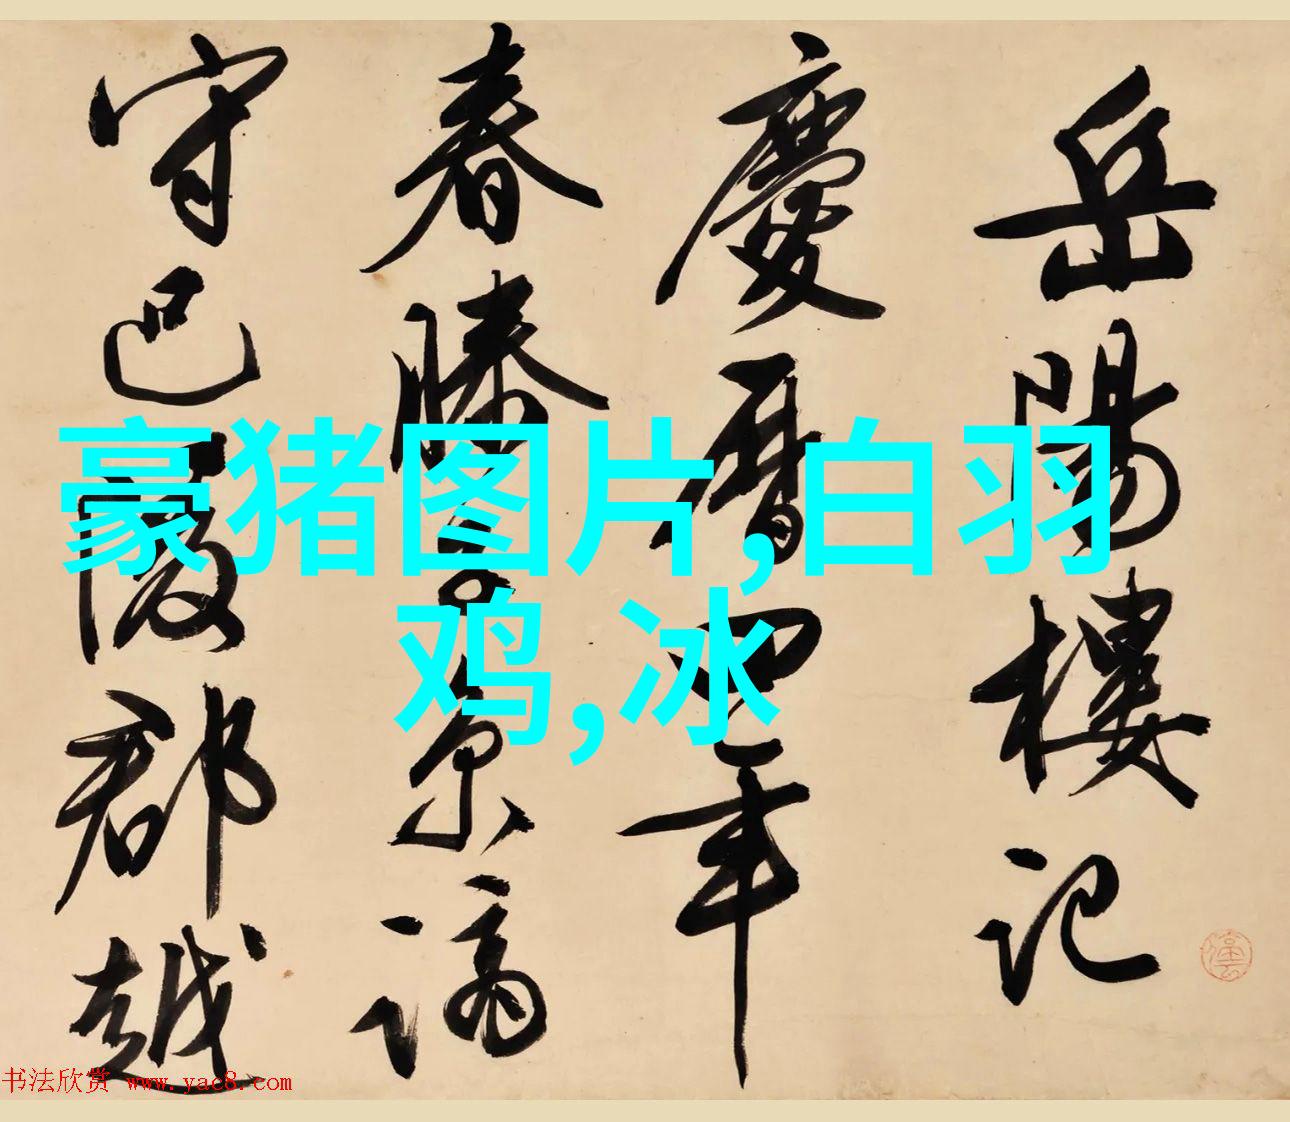 岳陽樓記
慶曆四年
春滕子京謫
守巴陵郡越
豪猪图片,白羽
鸡,冰
书法欣赏 www.yac8.com